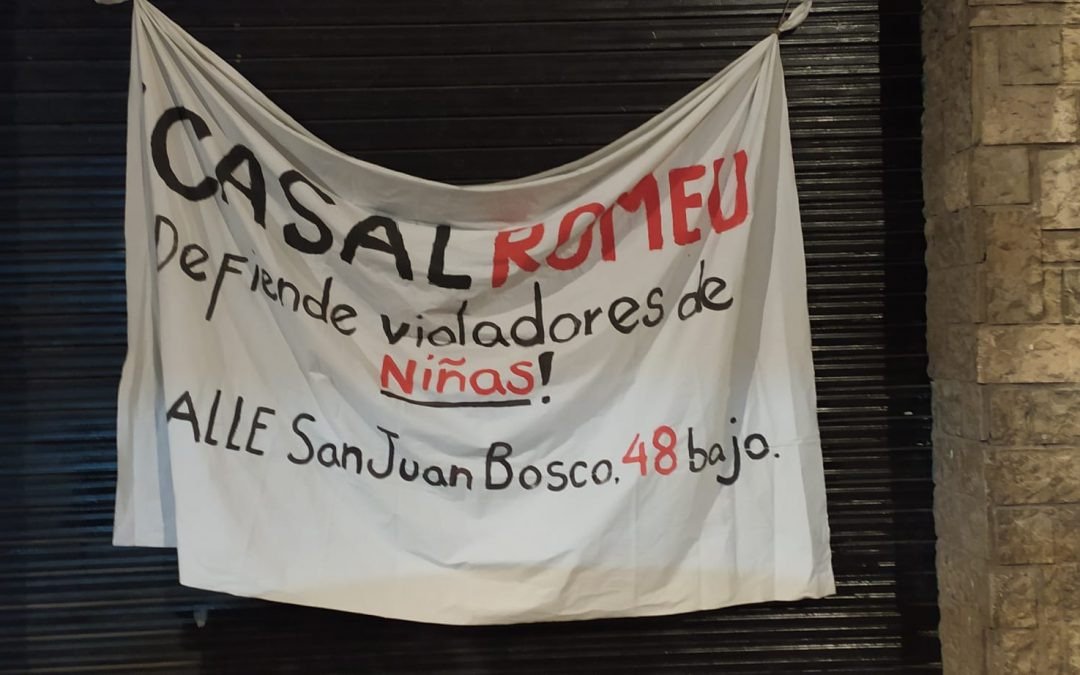 CASAL ROMEU
Defiende violadores de
Niñas!
ALLE San Juan Bosco, 48 bajo.